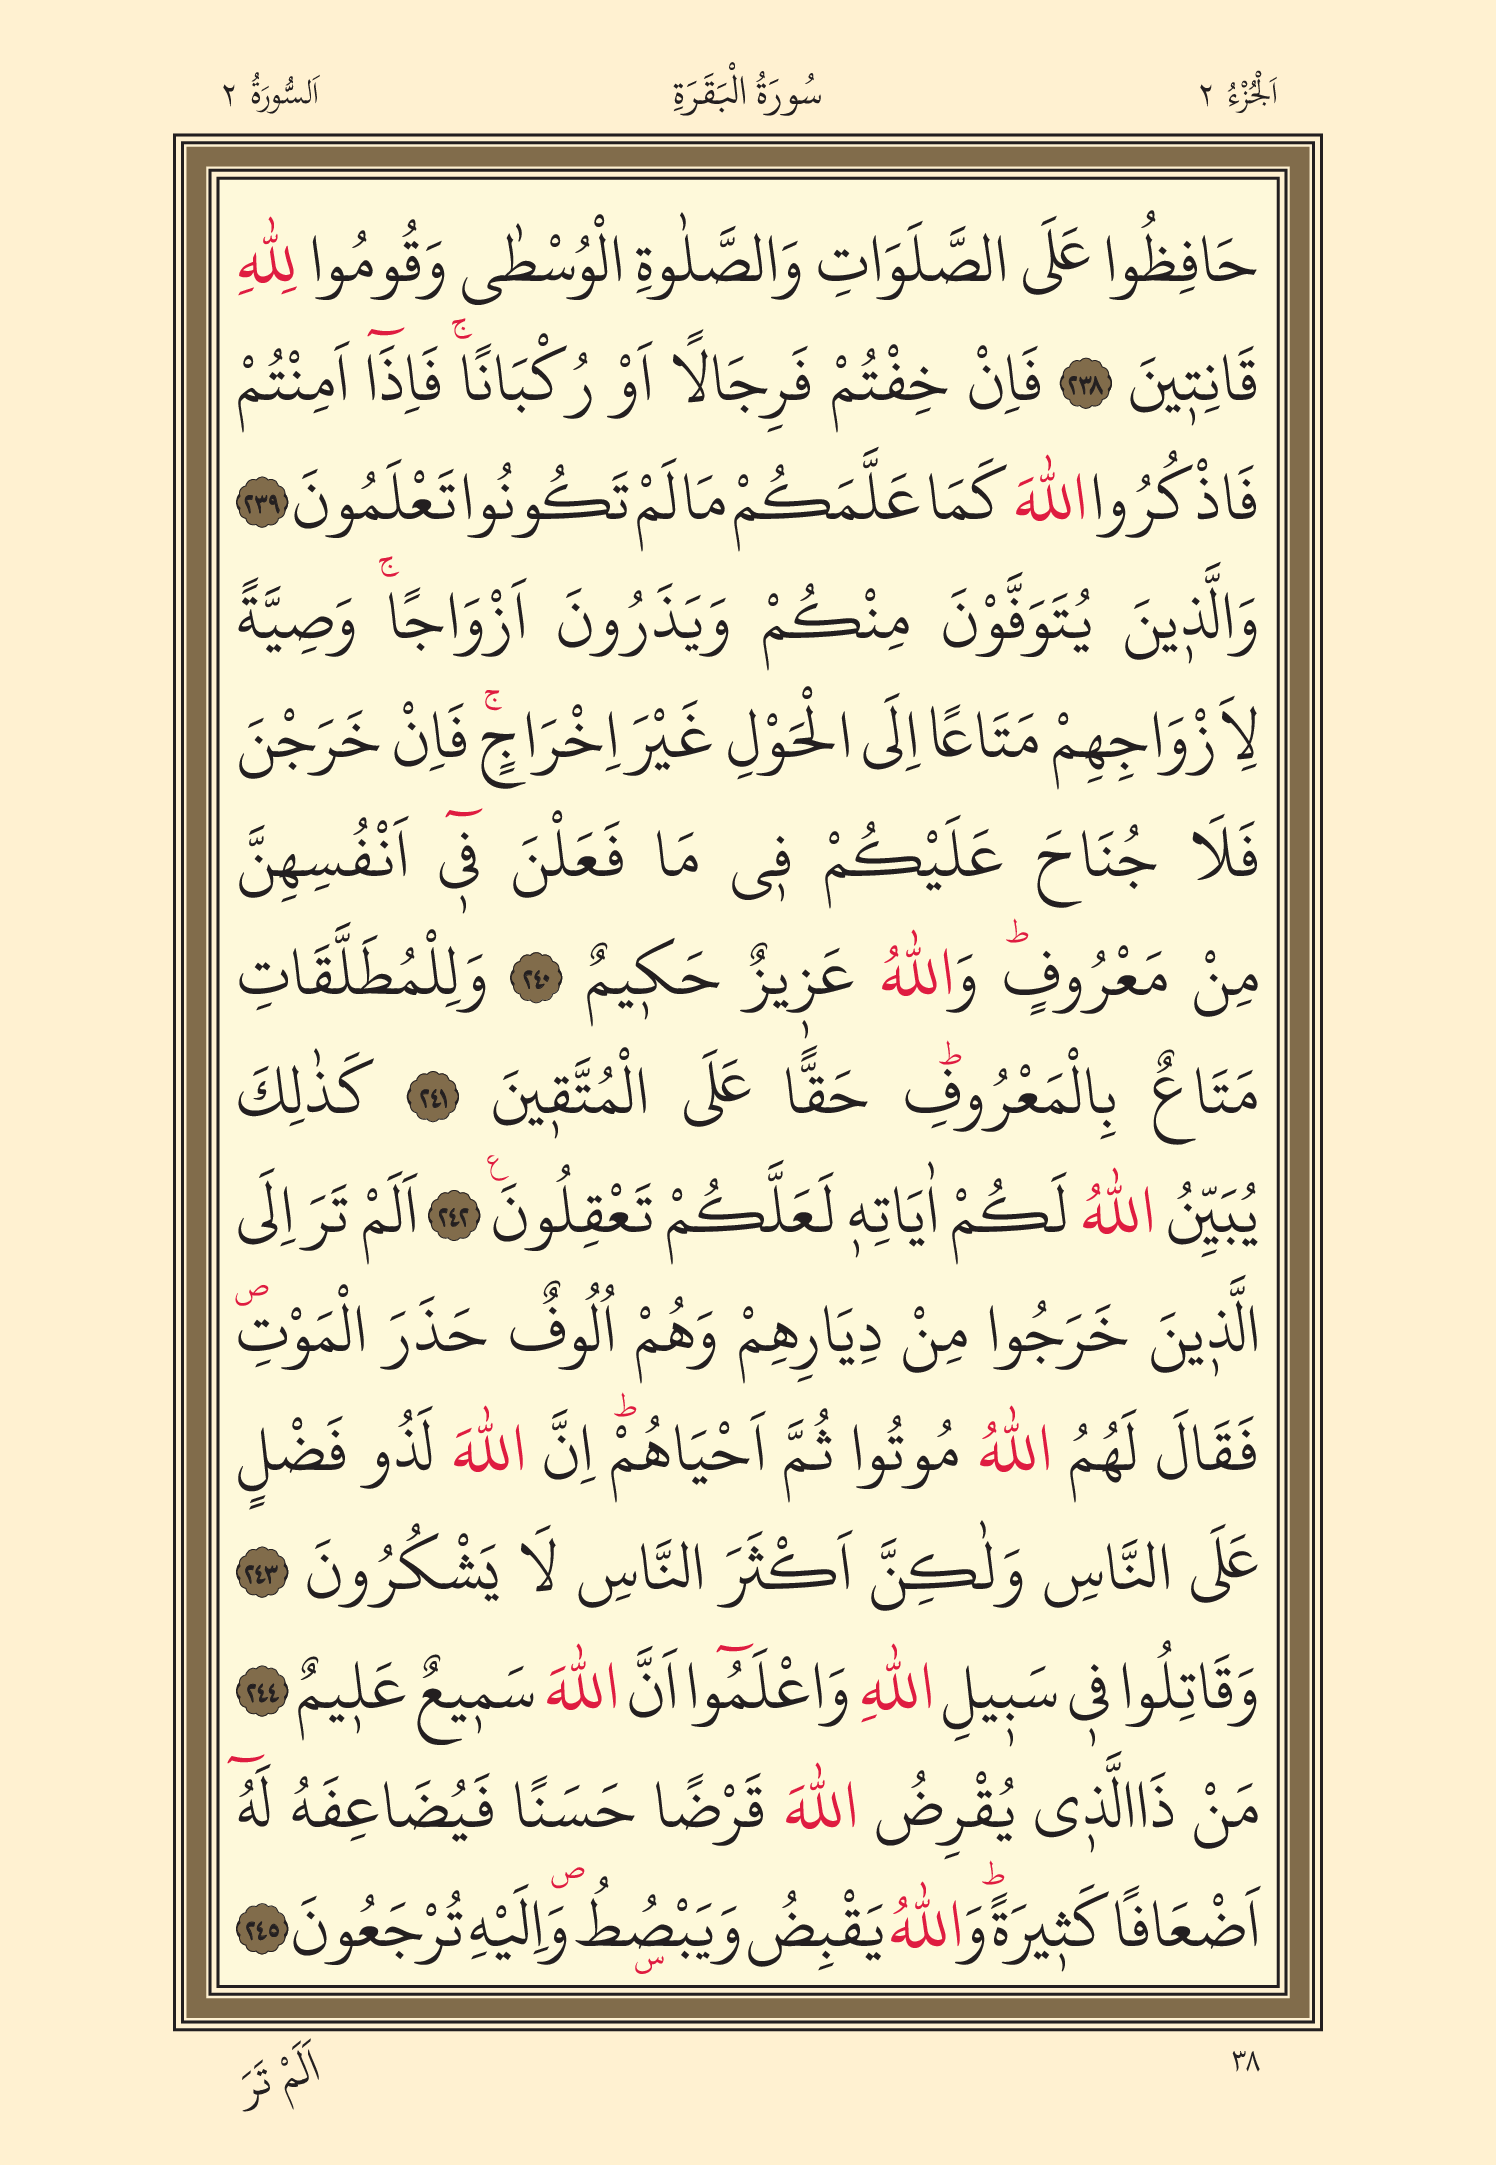 اَلْجُزْءُ ٢
سُورَةُ الْبَقَرَةِ
اَلسُّورَةُ ٢
حَافِظُوا عَلَى الصَّلَوَاتِ وَالصَّلٰوةِ الْوُسْطٰى وَقُومُوا لِلّٰهِ
قَانِت۪ينَ ٢٣٨ فَاِنْ خِفْتُمْ فَرِجَالًا اَوْ رُكْبَانًاۚ فَاِذَٓا اَمِنْتُمْ
فَاذْكُرُوا اللّٰهَ كَمَا عَلَّمَكُمْ مَا لَمْ تَكُونُوا تَعْلَمُونَ ٢٣٩
وَالَّذ۪ينَ يُتَوَفَّوْنَ مِنْكُمْ وَيَذَرُونَ اَزْوَاجًاۚ وَصِيَّةً
لِاَزْوَاجِهِمْ مَتَاعًا اِلَى الْحَوْلِ غَيْرَ اِخْرَاجٍۚ فَاِنْ خَرَجْنَ
فَلَا جُنَاحَ عَلَيْكُمْ ف۪ى مَا فَعَلْنَ ف۪ٓى اَنْفُسِهِنَّ
مِنْ مَعْرُوفٍؕ وَاللّٰهُ عَز۪يزٌ حَك۪يمٌ ٢٤٠ وَلِلْمُطَلَّقَاتِ
مَتَاعٌ بِالْمَعْرُوفِؕ حَقًّا عَلَى الْمُتَّق۪ينَ ٢٤١ كَذٰلِكَ
يُبَيِّنُ اللّٰهُ لَكُمْ اٰيَاتِه۪ لَعَلَّكُمْ تَعْقِلُونَ ع ٢٤٢ اَلَمْ تَرَ اِلَى
الَّذ۪ينَ خَرَجُوا مِنْ دِيَارِهِمْ وَهُمْ اُلُوفٌ حَذَرَ الْمَوْتِ ص
فَقَالَ لَهُمُ اللّٰهُ مُوتُوا ثُمَّ اَحْيَاهُمْؕ اِنَّ اللّٰهَ لَذُو فَضْلٍ
عَلَى النَّاسِ وَلٰكِنَّ اَكْثَرَ النَّاسِ لَا يَشْكُرُونَ ٢٤٣
وَقَاتِلُوا ف۪ى سَب۪يلِ اللّٰهِ وَاعْلَمُٓوا اَنَّ اللّٰهَ سَم۪يعٌ عَل۪يمٌ ٢٤٤
مَنْ ذَا الَّذ۪ى يُقْرِضُ اللّٰهَ قَرْضًا حَسَنًا فَيُضَاعِفَهُ لَهُٓ
اَضْعَافًا كَث۪يرَةًؕ وَاللّٰهُ يَقْبِضُ وَيَبْصُۣطُ ص وَاِلَيْهِ تُرْجَعُونَ ٢٤٥
٣٨
اَلَمْ تَرَ